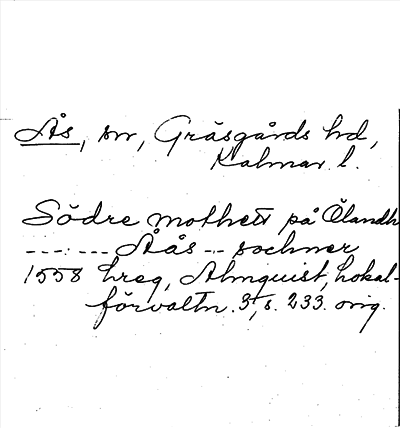 Ås, sn, Gräsgårds hd,
Kalmar l.
Södre mothett på Ölandh
--- --- Åås -- sochner
1558 hreg, Almquist, Lokal-
förvaltn. 3, s. 233. orig.